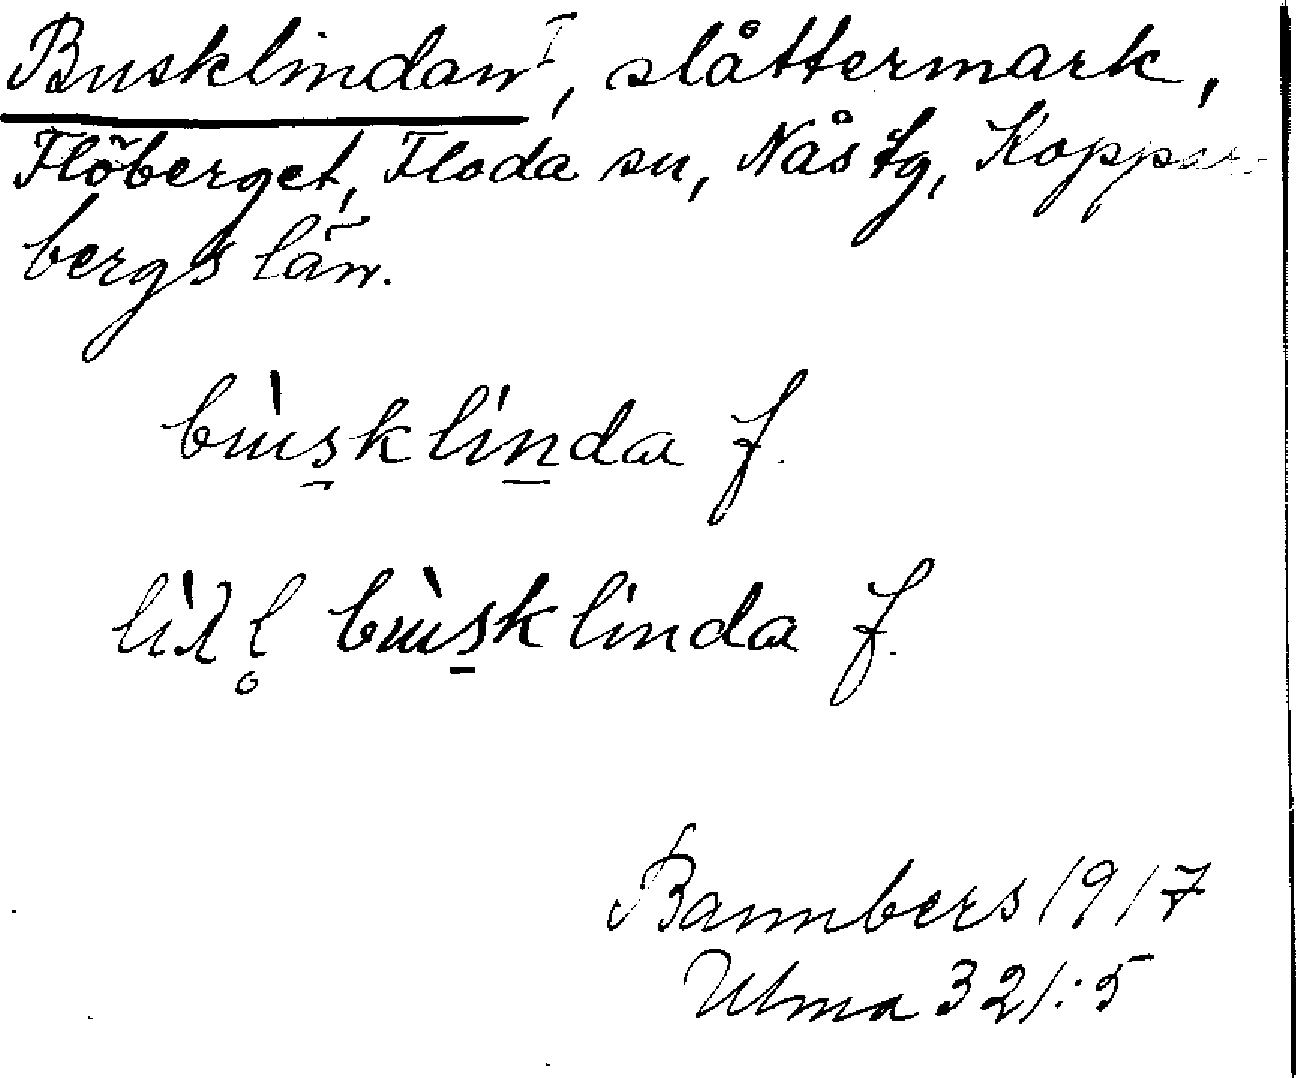 Busklindan I, slåttermark,
Flöberget, Floda sn, Nås tg, Koppar-
bergs län.
bùsklinda f.
lìļļ bùsklinda f.
Bannbers 1917
Ulma 321:5